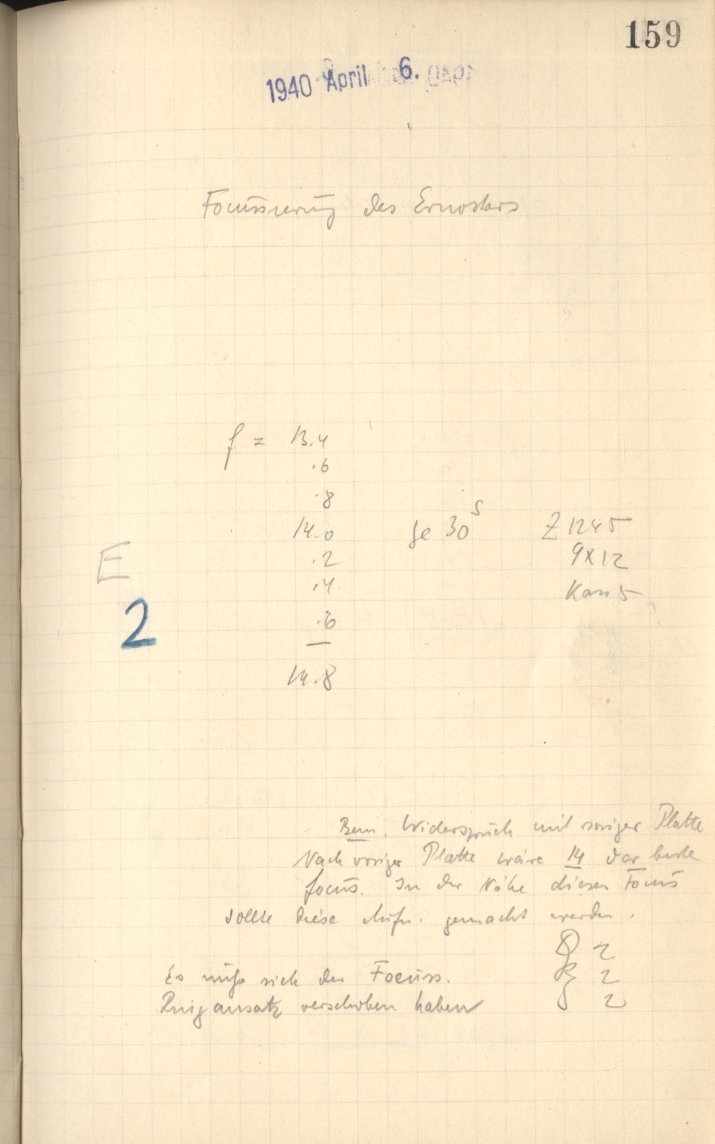 159
1940 April 6.
Focussierung des Ernostars
f = 13.4
.6
.8
14.0 je 30s Z 1245
.2 9x12
E .4 Kass 5
2 .6
14.8
Bem. Widerspruch mit voriger Platte
Nach voriger Platte wäre 14. der beste
Focus. In der Nähe dieses Focus
sollte diese Aufn. gemacht werden.
Q 2
Es muß sich der Focuss. R 2
Ringansatz verschoben haben 2